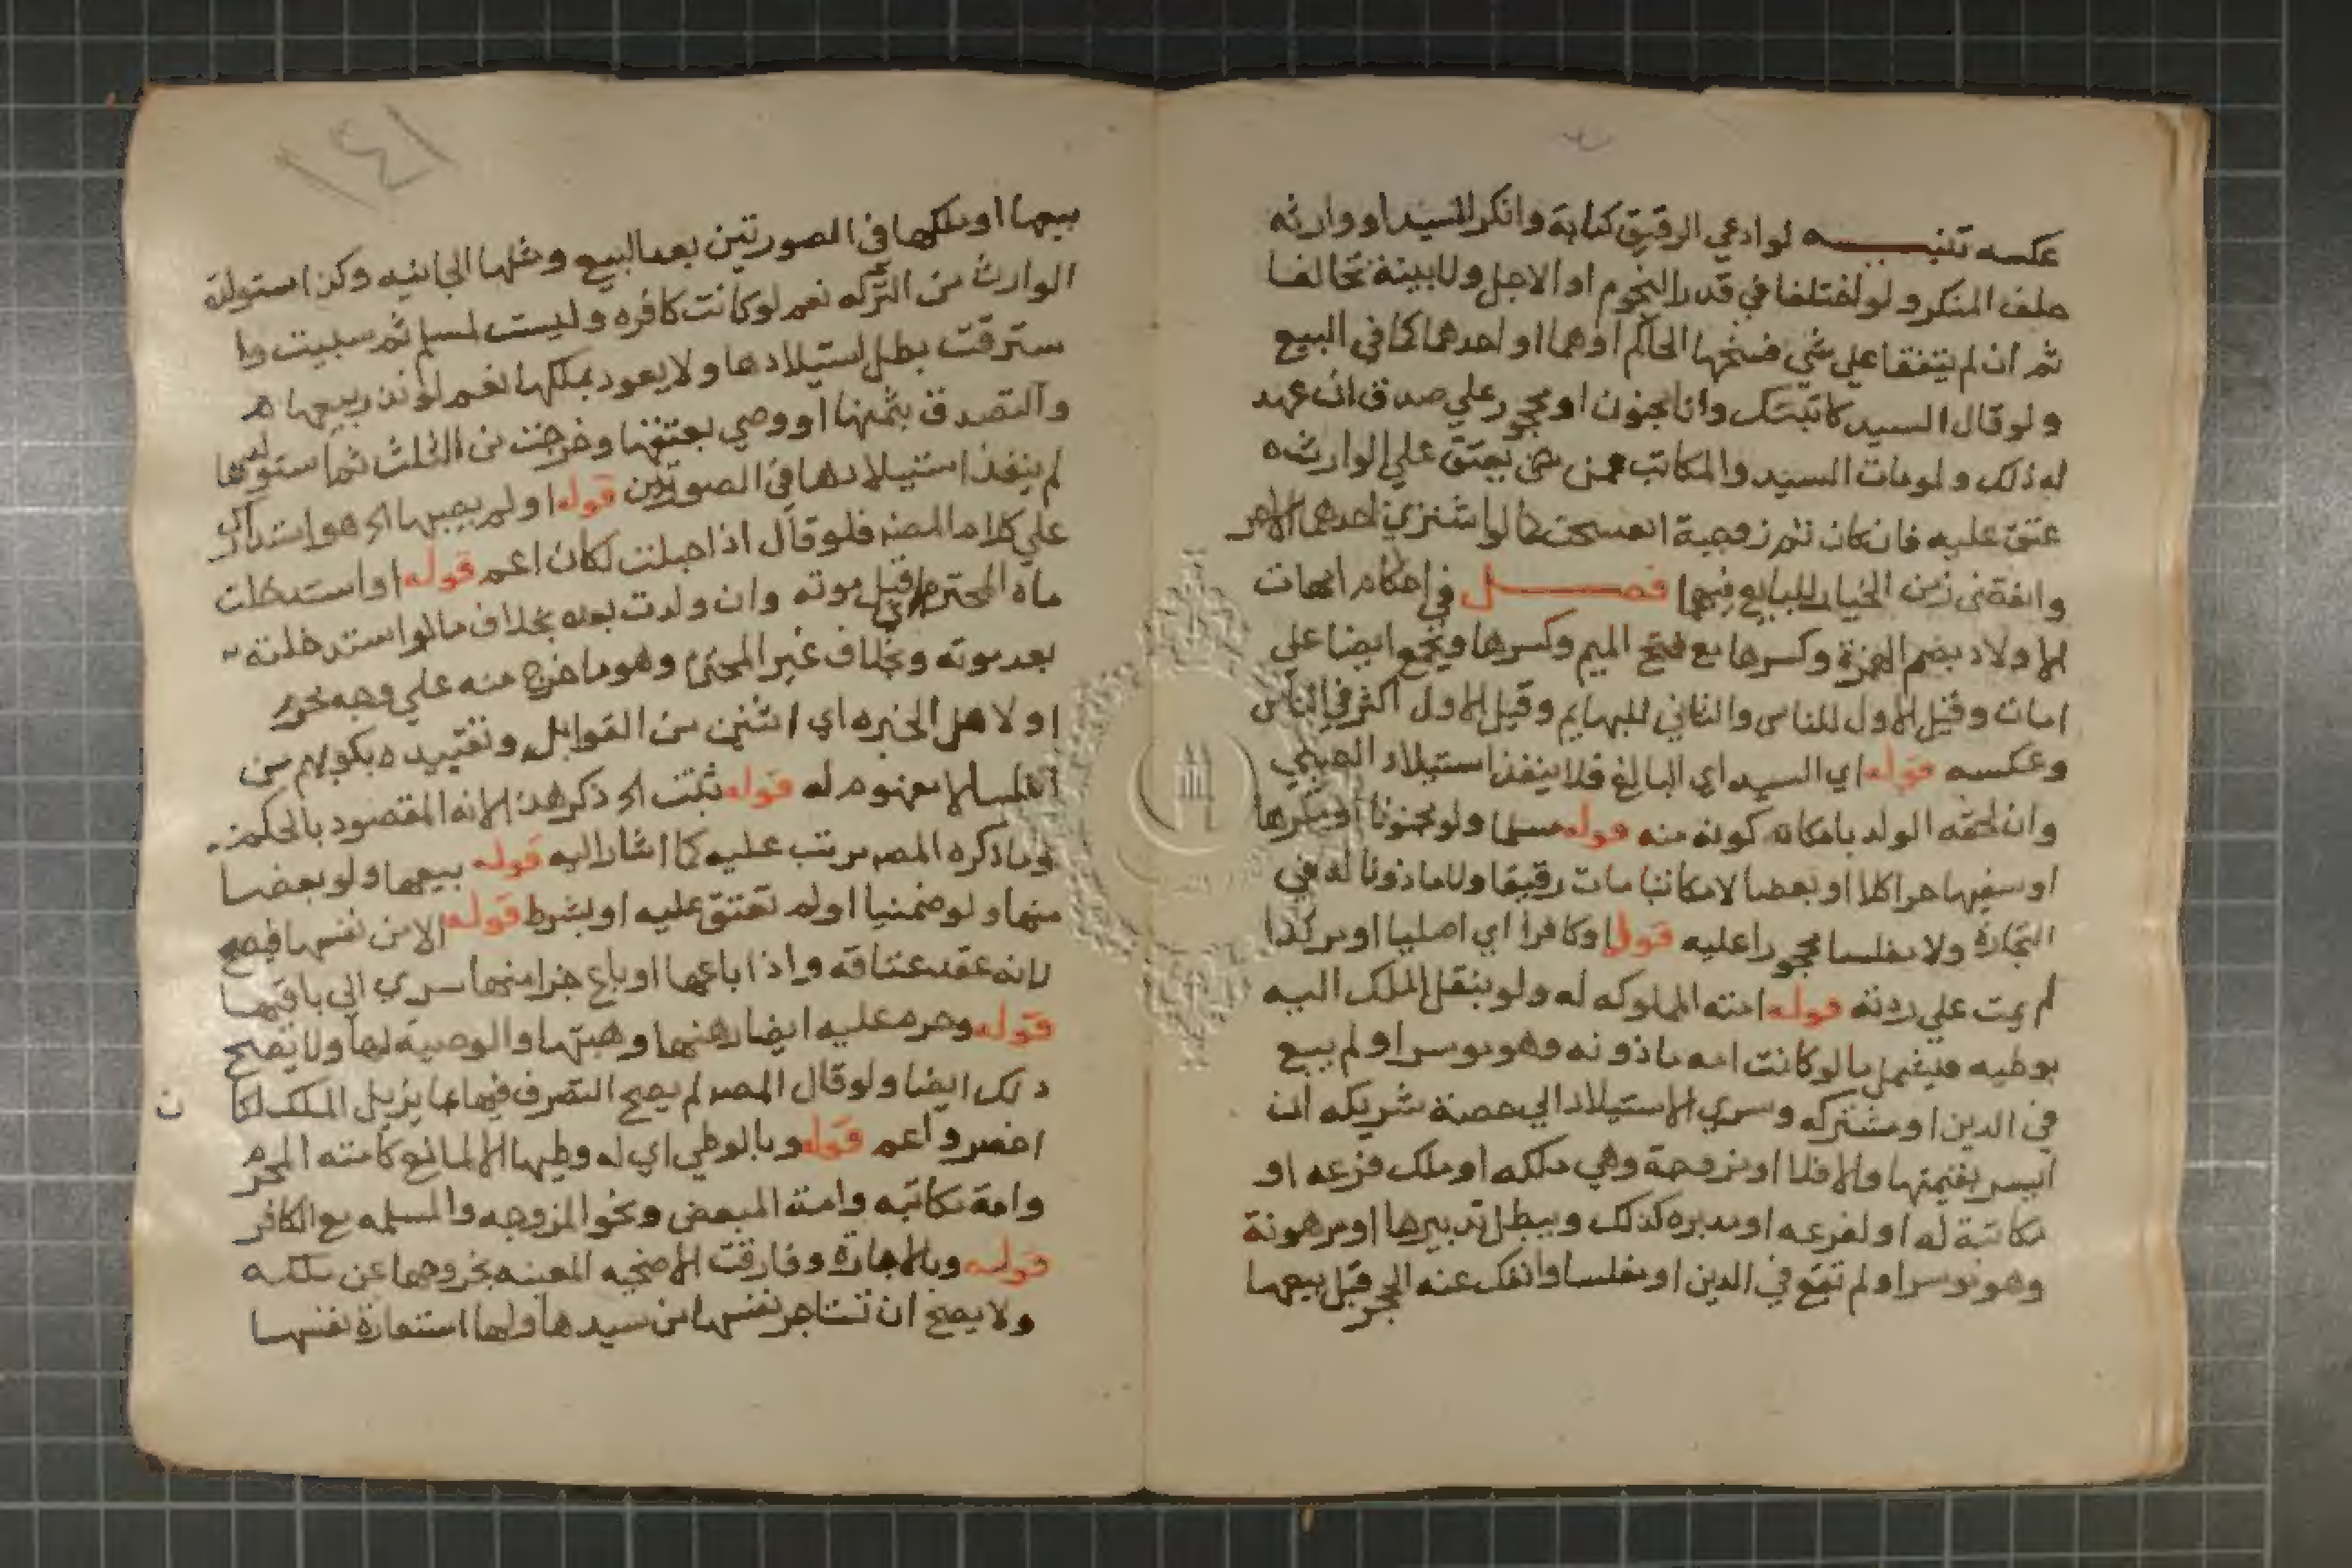 عكسه تنبيه لو ادعي الرقيق كتابة وانكر السيد او وارثه
حلف المنكر ولو اختلفا في قدر النجوم او الاجل ولا بينة تحالفا
ثم ان لم يتفقا علي شي فسخها الحاكم او هما او احدهما كما في البيع
ولو قال السيد كاتبتك وانا مجنون او محجور علي صدق ان عهد
له ذلك ولو مات السيد والمكاتب ممن يعتق علي الوارث
عتق عليه فان كان ثم زوجية انفسخت كما لو اشتري احدهما الاخر
وانقضي زمن الخيار للبايع فيهما فصل في احكام امهات
الاولاد بضم الهمزة وكسرها مع فتح الميم وكسرها ويجمع ايضا علي
امات وقيل الاول للناس والثاني للبهايم وقيل الاول اكثر في الناس
وعكسه قوله اي السيد اي البالغ فلا ينفذ استيلاد الصبي
وان لحقه الولد بامكانه كونه منه قوله مسلما ولو مجنونا او مكرها
او سفيها حرا كلا او بعضا لا مكاتبا مات رقيقا ولا ماذونا له في
التجارة ولا مفلسا محجورا عليه قوله او كافرا اي اصليا او مرتدا
لم يمت علي ردته قوله امته المملوكه له ولو بنقل الملك اليه
بوطيه فيشمل ما لو كانت امه ماذونه وهو موسر او لم يبع
في الدين او مشتركه وسري الاستيلاد الي حصة شريكه ان
ايسر بقيمتها والا فلا او مزوجة وهي ملكه او ملك فرعه او
مكاتبة له او لفرعه او مدبره كذلك ويبطل تدبيرها او مرهونة
وهو موسر او لم تبع في الدين او مفلسا وانفك عنه الحجر قبل بيعها
١٤١
بيعها او ملكها في الصورتين بعد البيع ومثلها الجانيه وكذا استولدة
الوارث من التركه نعم لو كانت كافره وليست لمسلم ثم سبيت وا
سترقت بطل استيلادها ولا يعود بملكها نعم لو نذر بيعها
والتصدق بثمنها او وصي بعتقها وخرجت من الثلث ثم استولدها
لم ينفذ استيلادها في الصورتين قوله او لم يصبها الخ هو استدراك
علي كلام المصنف فلو قال اذا احبلت لكان اعم قوله او استدخلت
ماه المحترم اي قبل موته وان ولدت بعده بخلاف ما لو استدخلته
بعد موته وبخلاف غير المحترم وهو ما خرج منه علي وجه محرم
او لاهل الخبره اي اثنين من القوابل وتقييده بكونهم من
لا مفهوم له قوله ثبت الخ ذكر هذا لانه المقصود بالحكم
وما ذكره المصر مرتب عليه كما اشار اليه قوله بيعها ولو بعضا
منها ولو ضمنيا او لم تعتق عليه او بشرط قوله الا من نفسها فيصح
لانه عقد عتاقه واذا باعها او باع جزا منها سري الي باقيها
قوله وحرم عليه ايضا رهنها وهبتها والوصية بها ولا يصح
ذلك ايضا ولو قال المصر لم يصح التصرف فيها بما يزيل الملك لكان
اخصر واعم قوله وبالوطي اي له وطيها الا لمانع كامته المحرم
وامة مكاتبه وامة المبعض ونحو المزوجه والمسلمه مع الكافر
قوله وبالاجارة وفارقت الاضحيه المعينه بخروجها عن ملكه
ولا يصح ان تستاجر نفسها من سيدها ولها استعارة نفسها